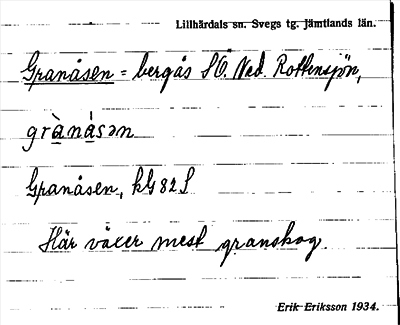 Lillhärdals sn. Svegs tg. Jämtlands län.
Granåsen = bergås S.Ö. Ned. Rottensjön,
grànásən
Granåsen, kG 82 S
Här växer mest granskog.
Erik Eriksson 1934.